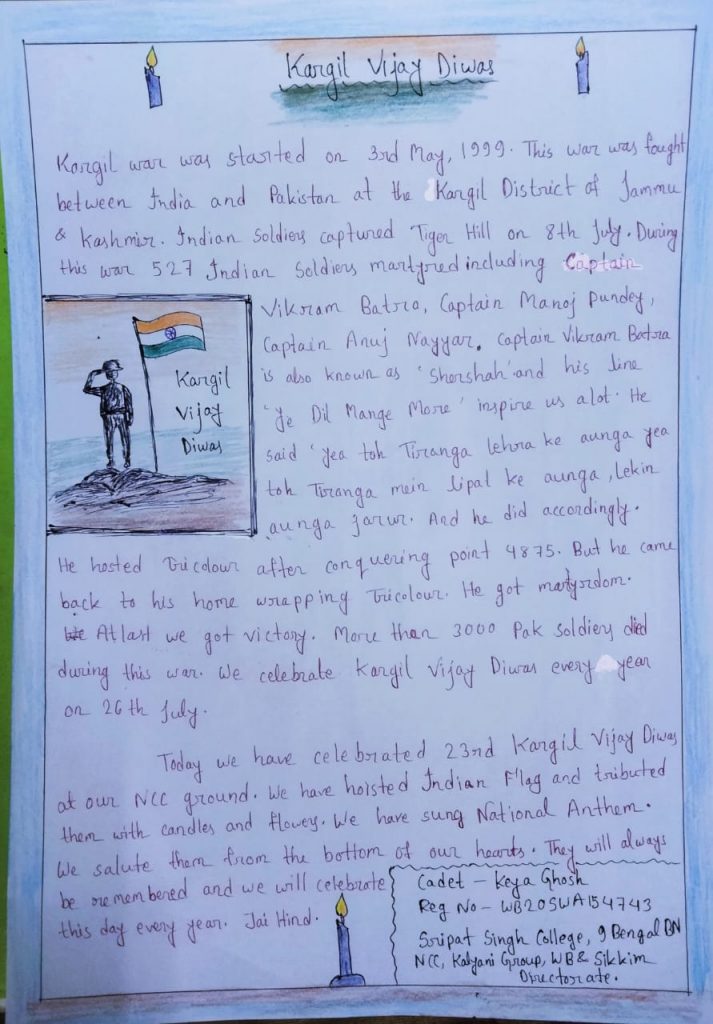 Kargil Vijay Diwas
Kargil war was started on 3rd May, 1999. This war was fought
between India and Pakistan at the Kargil District of Jammu
& Kashmir. Indian Soldiers captured Tiger Hill on 8th July. During
this war 527 Indian Soldiers martyred including Captain
Vikram Batra, Captain Manoj Pandey,
Captain Anuj Nayyar. Captain Vikram Batra
is also known as 'Shershah' and his line
'Ye Dil Mange More' inspire us alot. He
said 'Yea toh Tiranga lehra ke aunga yea
toh Tiranga mein lipat ke aunga, Lekin
aunga jarur. And he did accordingly.
Kargil
Vijay
Diwas
He hosted Tricolour after conquering point 4875. But he came
back to his home wrapping Tricolour. He got martyrdom.
At last we got victory. More than 3000 Pak Soldiers died
during this war. We celebrate Kargil Vijay Diwas every year
on 26th July.
Today we have celebrated 23rd Kargil Vijay Diwas
at our NCC ground. We have hoisted Indian Flag and tributed
them with candles and flowey. We have sung National Anthem.
We salute them from the bottom of our hearts. They will always
be remembered and we will celebrate
this day every year. Jai Hind.
Cadet - Keya Ghosh
Reg No - WB20SWA154743
Sripat Singh College, 9 Bengal BN
NCC, Kalyani Group, WB & Sikkim
Directorate.